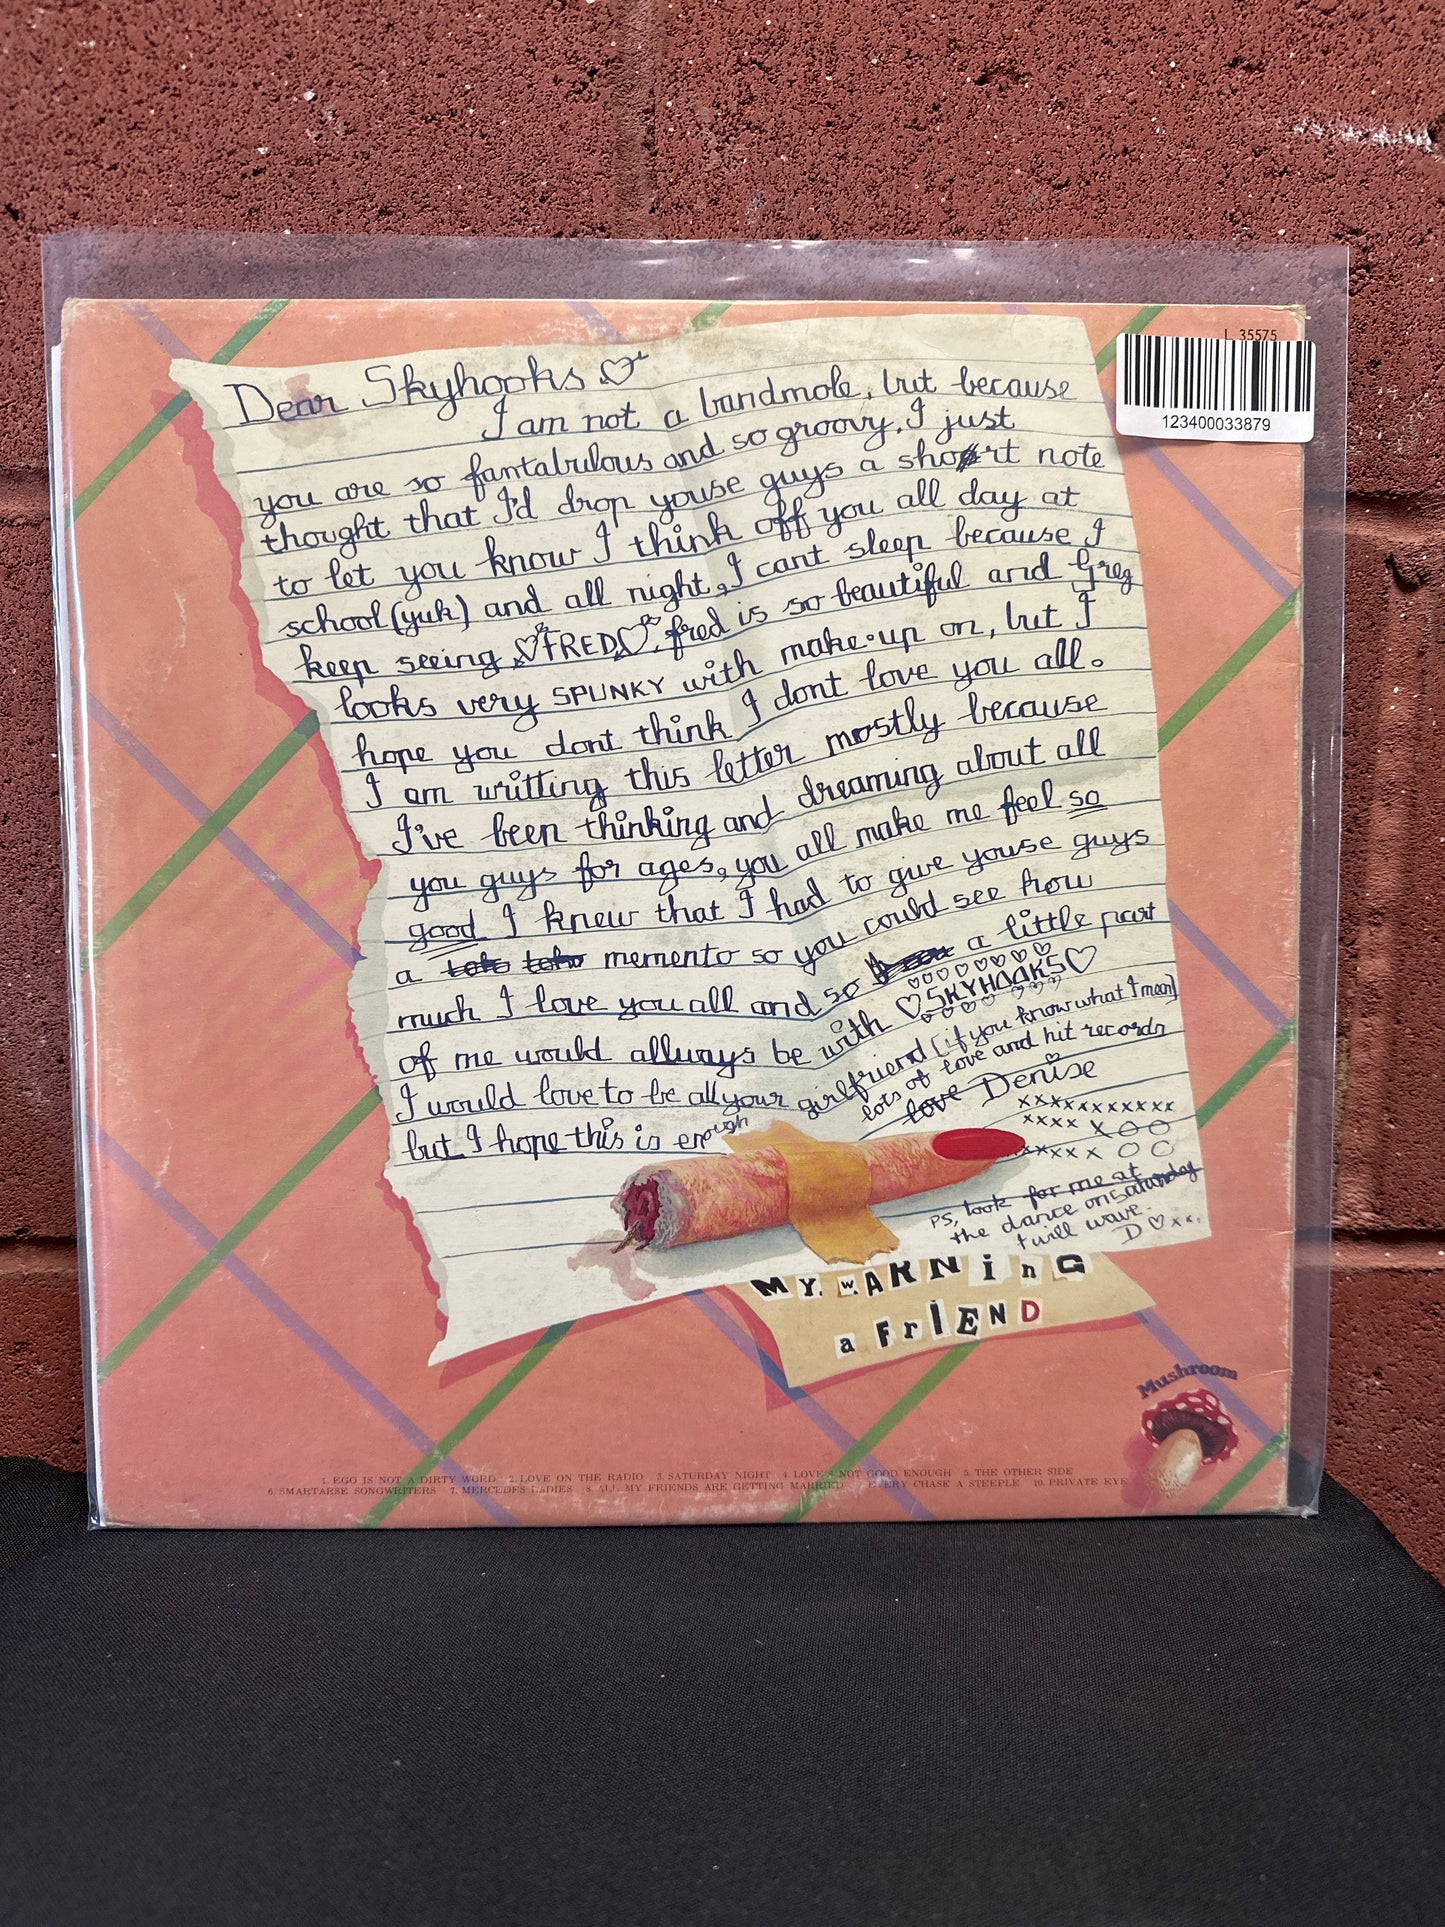 L 35575
123400033879
Dear Skyhooks
I am not a bandmole, but because
you are so fantabulous and so groovy, I just
thought that I'd drop youse guys a short note
to let you know I think off you all day at
school (yuk) and all night, I cant sleep because I
keep seeing FRED. fred is so beautiful and Greg
looks very SPUNKY with make-up on, but I
hope you dont think I dont love you all.
I am writting this letter mostly because
I've been thinking and dreaming about all
you guys for ages, you all make me feel so
good I knew that I had to give youse guys
a memento so you could see how
much I love you all and so a little part
of me would allways be with SKYHOOKS
I would love to be all your girlfriend (if you know what I mean)
but I hope this is enough
lots of love and hit records
love Denise
xxxxxxxxxxx
xxxx XOO
xxxxx OO
PS, look for me at
the dance on saturday
I will wave.
D xx.
MY WARNinG
a FrIEND
Mushroom
1. EGO IS NOT A DIRTY WORD 2. LOVE ON THE RADIO 3. SATURDAY NIGHT 4. LOVE'S NOT GOOD ENOUGH 5. THE OTHER SIDE
6. SMARTARSE SONGWRITERS 7. MERCEDES LADIES 8. ALL MY FRIENDS ARE GETTING MARRIED EVERY CHASE A STEEPLE 10. PRIVATE EYE